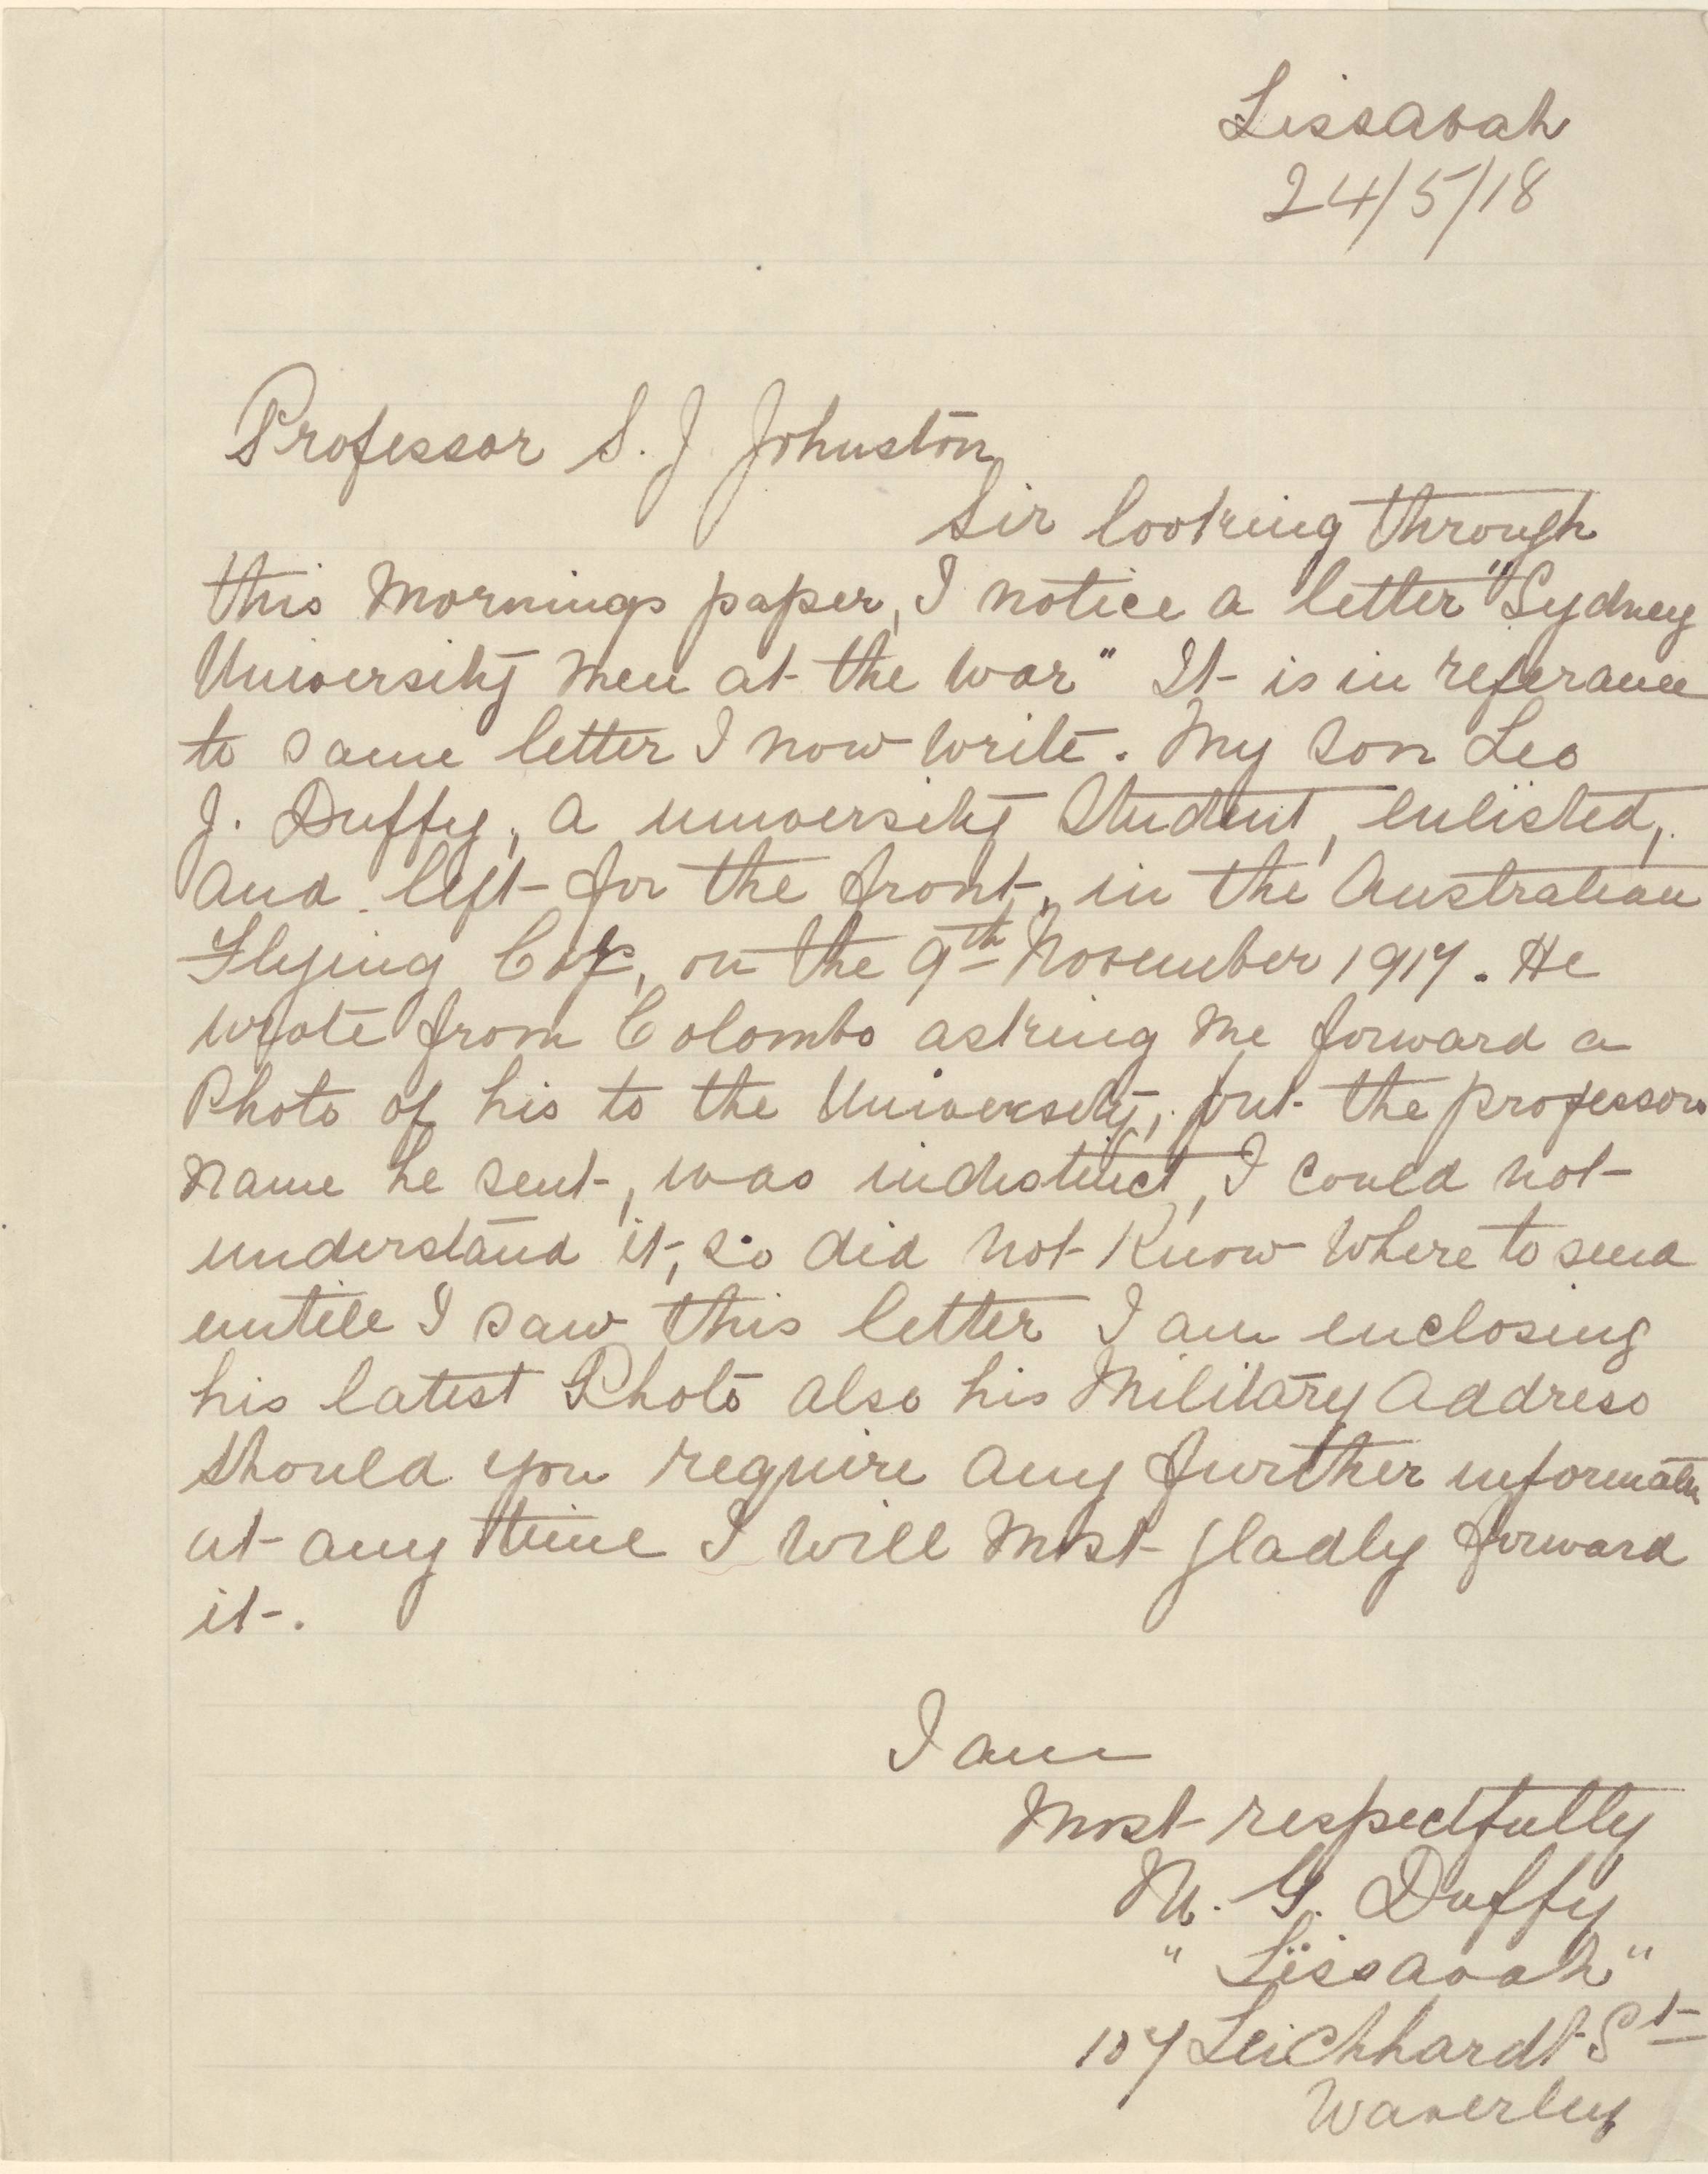 Lissavah
24/5/18
Professor S. J Johnston
Sir looking through
this mornings paper, I notice a letter "Sydney
University men at the War" It is in referance
to same letter I now write. My Son Leo
J. Duffy, a university Student, enlisted,
and left for the front, in the Australian
Flying Cop, on the 9th November 1917. He
wrote from Colombo asking me forward a
Photo of his to the University, but the professors
name he sent, was indistinct, I could not
understand it, so did not Know Where to send
untile I saw this letter I am enclosing
his latest Photo also his Military Address
Should you require any further information
at any time I will most gladly forward
it.
I am
Most respectfully
M. G. Duffy
"Lissavah"
107 Leichhardt St
Waverley